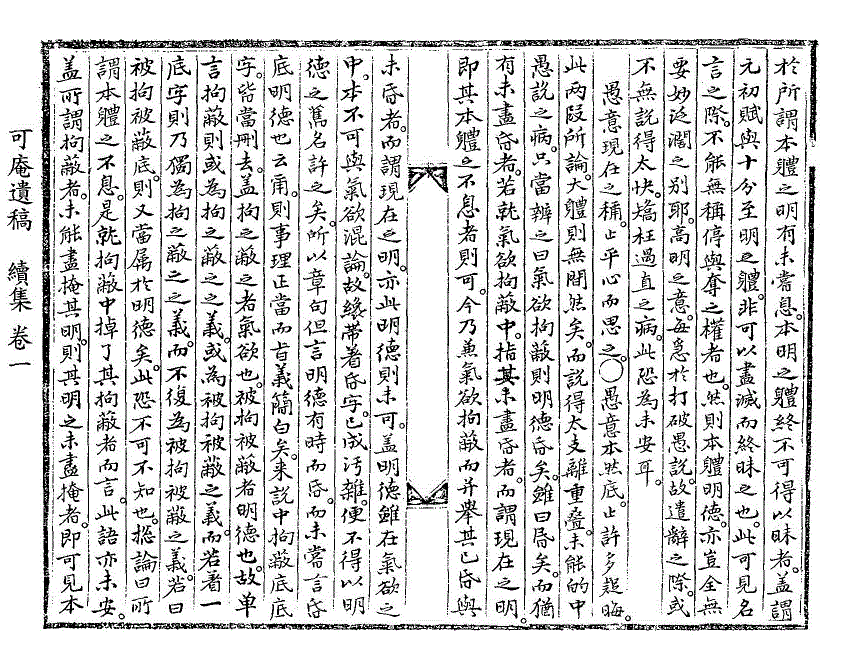 於所謂本體之明有未嘗息本明之體終不可得以昧者盖謂
元初賦與十分至明之體非可以盡滅而終昧之也此可見名
言之際不能無稱停與奪之權者也然則本體明德亦豈全無
要妙泛濶之別耶高明之意每急於打破愚說故遣辭之際或
不無說得太快矯枉過直之病此恐為未安耳
愚意現在之稱止平心而思之○愚意本然底止許多起晦
此兩段所論大體則無間然矣而說得太支離重疊未能的中
愚說之病只當辨之曰氣欲拘蔽則明德昏矣雖曰昏矣而猶
有未盡昏者若就氣欲拘蔽中指其未盡昏者而謂現在之明
即其本體之不息者則可今乃兼氣欲拘蔽而並擧其已昏與
未昏者而謂現在之明亦此明德則未可盖明德雖在氣欲之
中本不可與氣欲混論故纔帶著昏字已成汚雜便不得以明
德之舊名許之矣所以章句但言明德有時而昏而未嘗言昏
底明德也云爾則事理正當而旨義簡白矣來說中拘蔽底底
字皆當刪去盖拘之蔽之者氣欲也被拘被蔽者明德也故單
言拘蔽則或為拘之蔽之之義或為被拘被蔽之義而若着一
底字則乃獨為拘之蔽之之義而不復為被拘被蔽之義若曰
被拘被蔽底則又當属於明德矣此恐不可不知也捴論曰所
謂本體之不息是就拘蔽中掉了其拘蔽者而言此語亦未安
盖所謂拘蔽者未能盡掩其明則其明之未盡掩者即可見本
可庵遺稿 續集 卷一